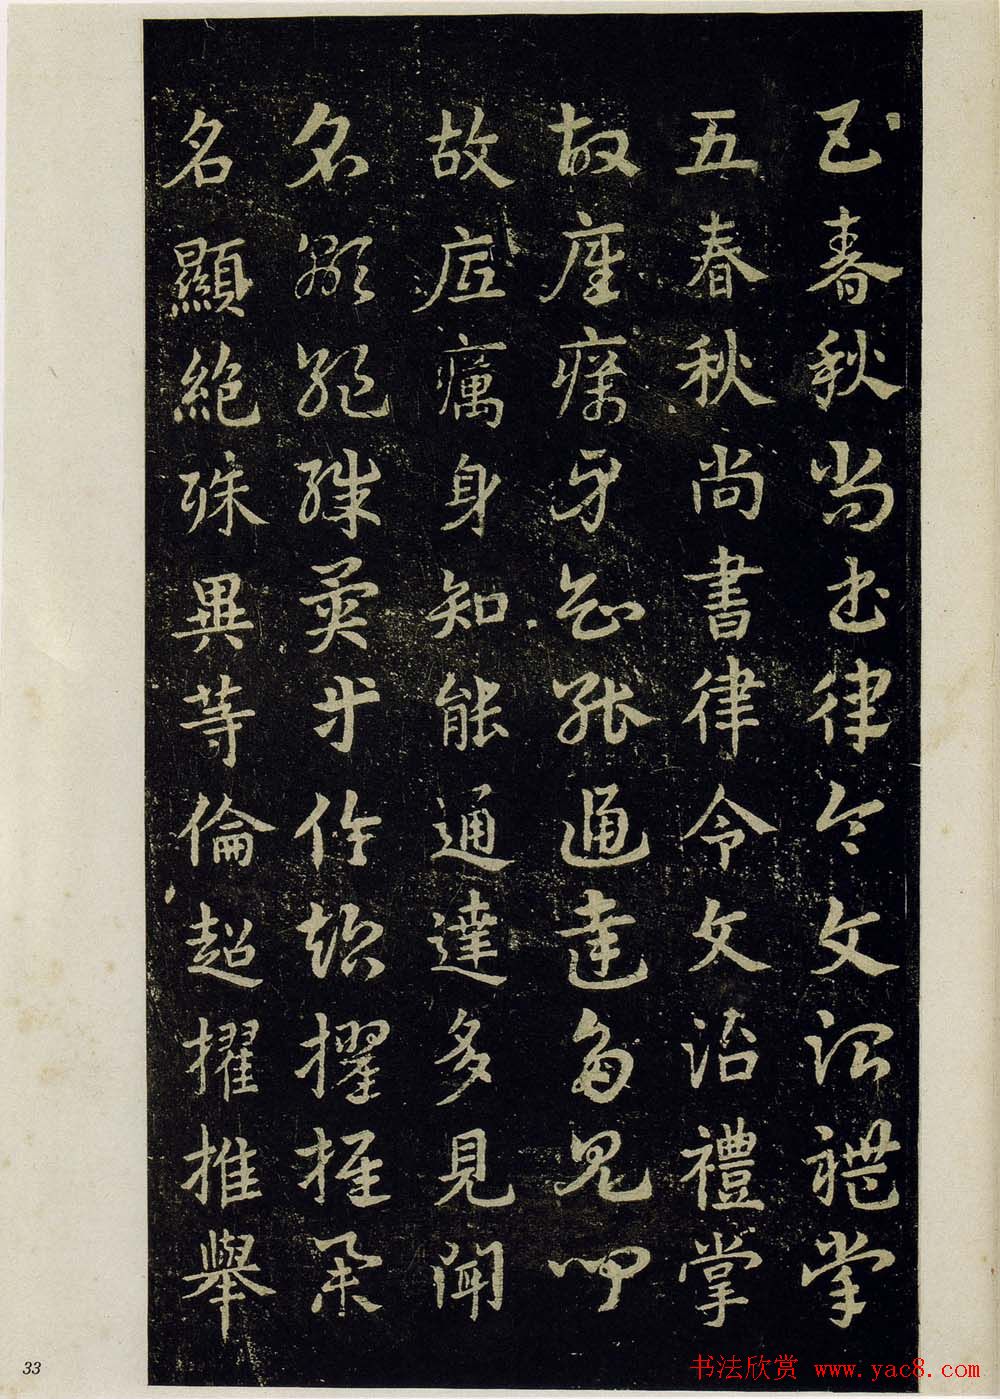 五春秋尚書律令文治禮掌
五春秋尚書律令文治禮掌
故底癘身知能通達多見聞
故底癘身知能通達多見聞
名顯絕殊異等倫超擢推舉
名顯絕殊異等倫超擢推舉
33
书法欣赏 www.yac8.com